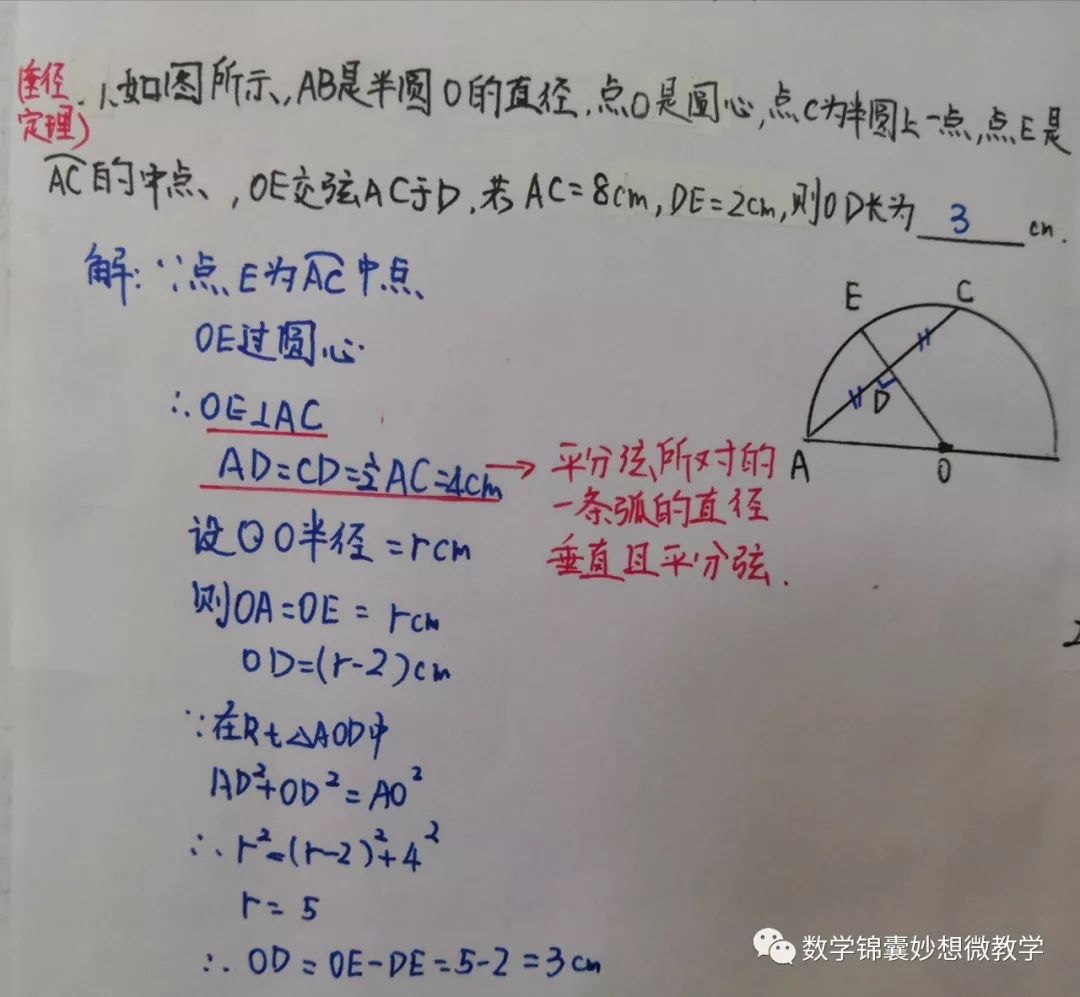 (垂径定理) 1、如图所示,AB是半圆O的直径,点O是圆心,点C为半圆上一点,点E是
AC的中点、,OE交弦AC于D,若AC=8cm,DE=2cm,则OD长为 3 cm.
解:∵点E为AC中点
OE过圆心
∴OE⊥AC
AD=CD=½AC=4cm → 平分弦所对的
一条弧的直径
垂直且平分弦.
设⊙O半径=rcm
则OA=OE=rcm
OD=(r-2)cm
∵在Rt△AOD中
AD²+OD²=AO²
∴r²=(r-2)²+4²
r=5
∴OD=OE-DE=5-2=3cm
E C
D
A O
数学锦囊妙想微教学